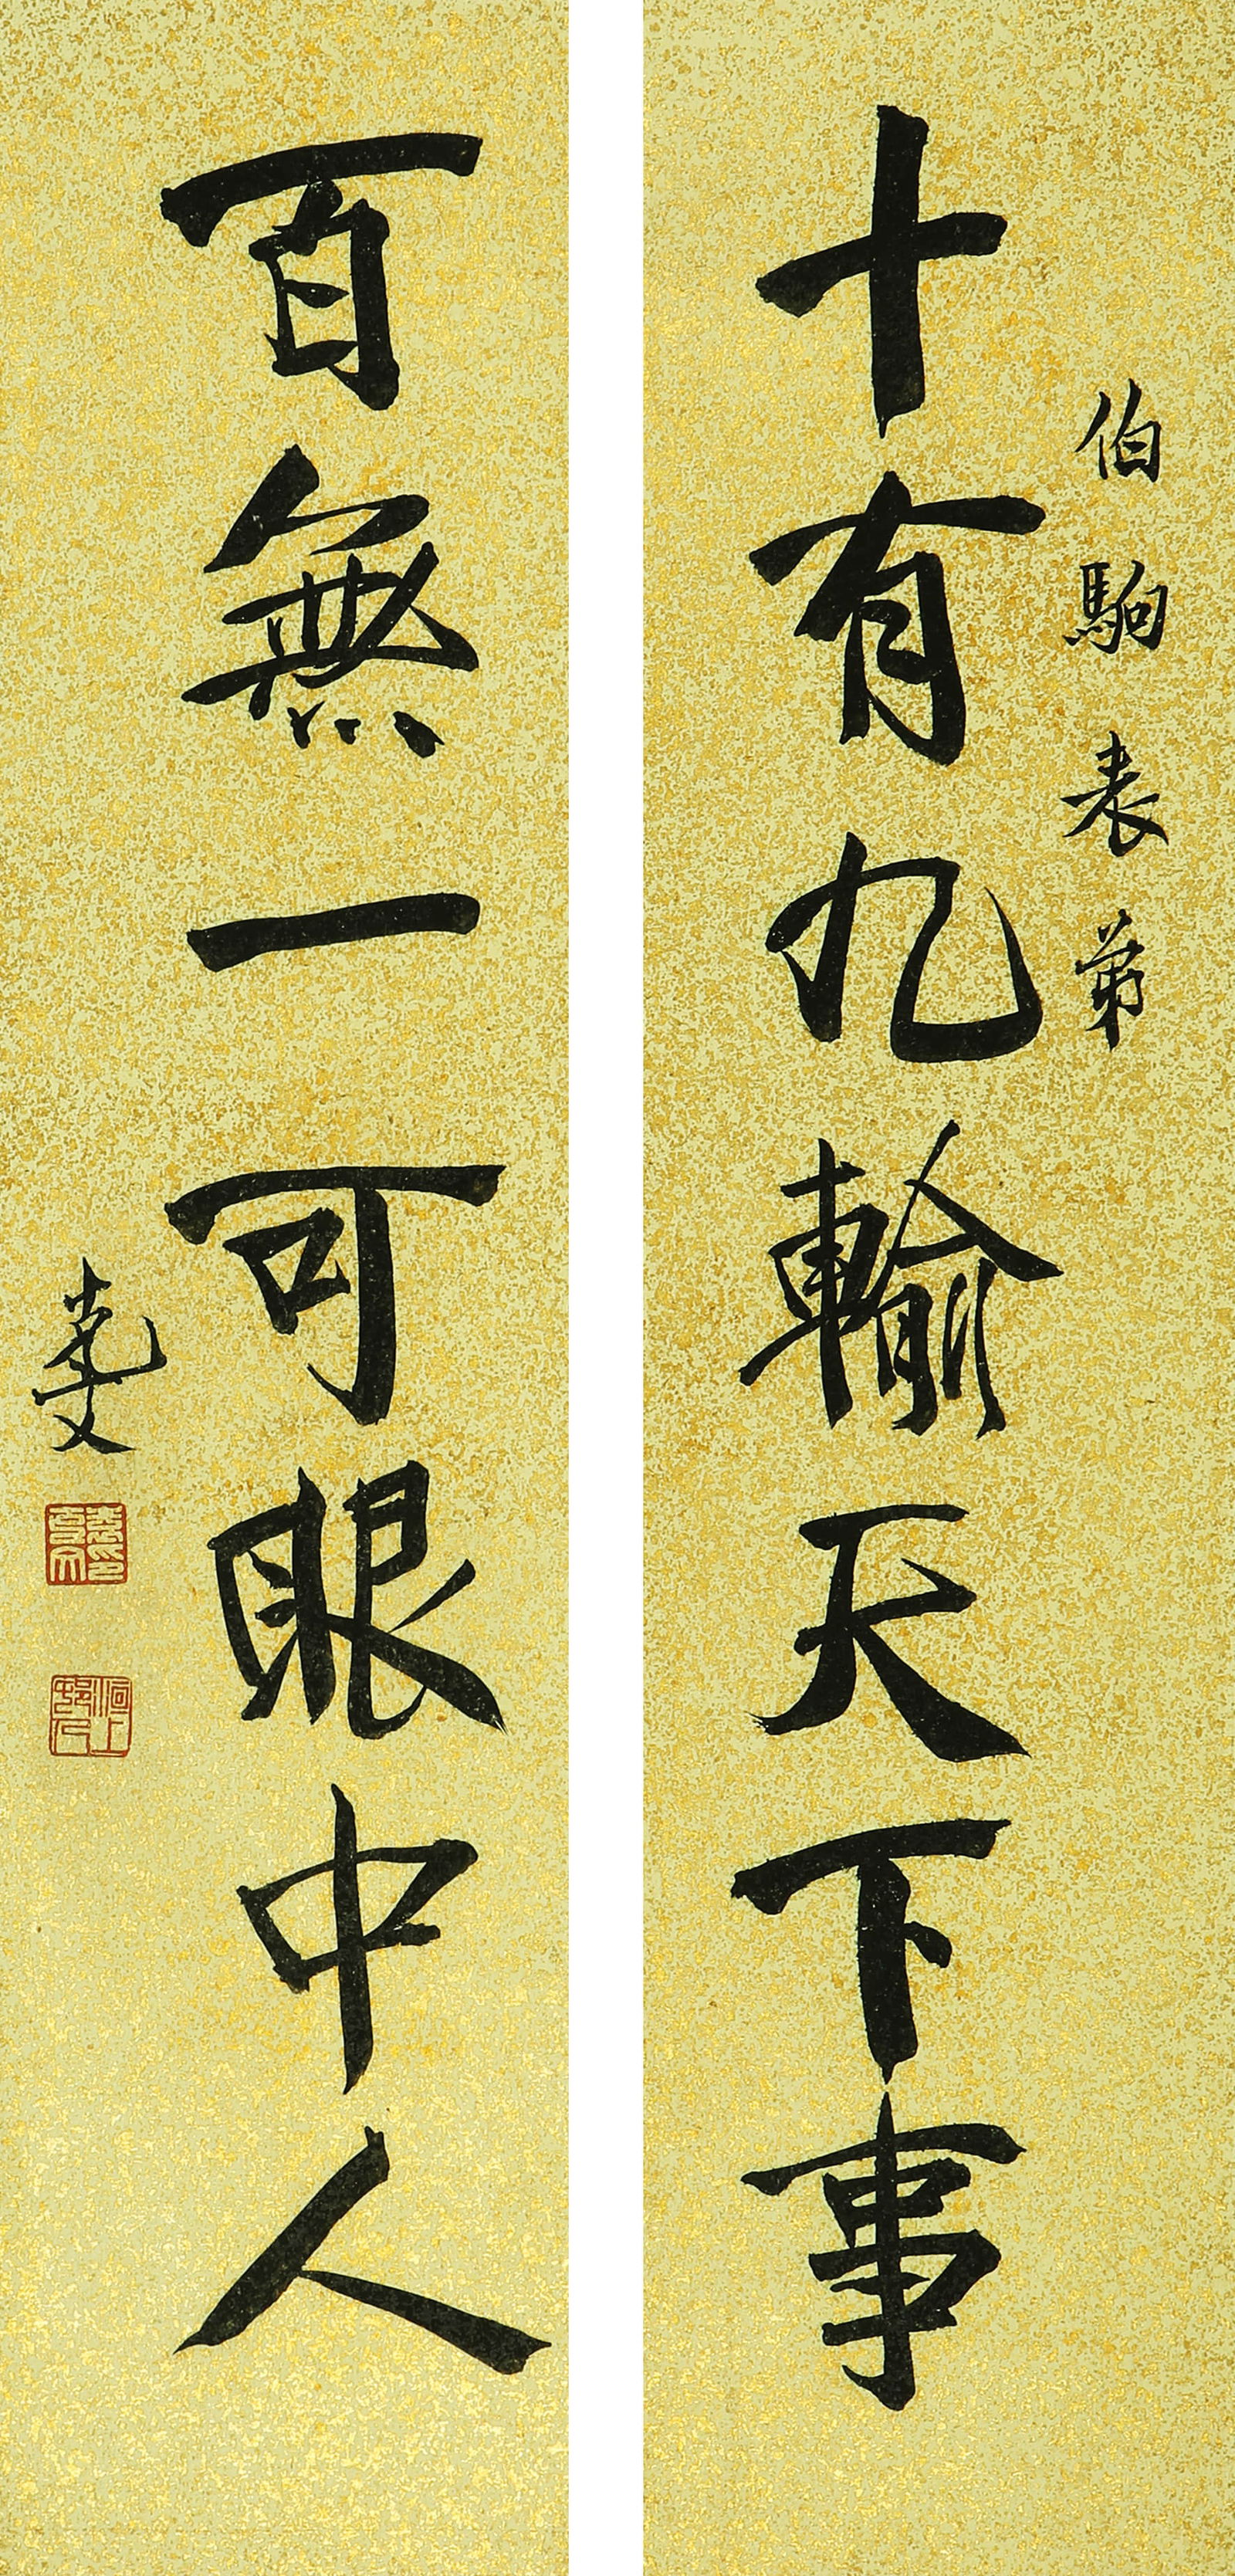 伯駒表弟
十有九輸天下事
百無一可眼中人
克文
袁印克文
洹上邨人